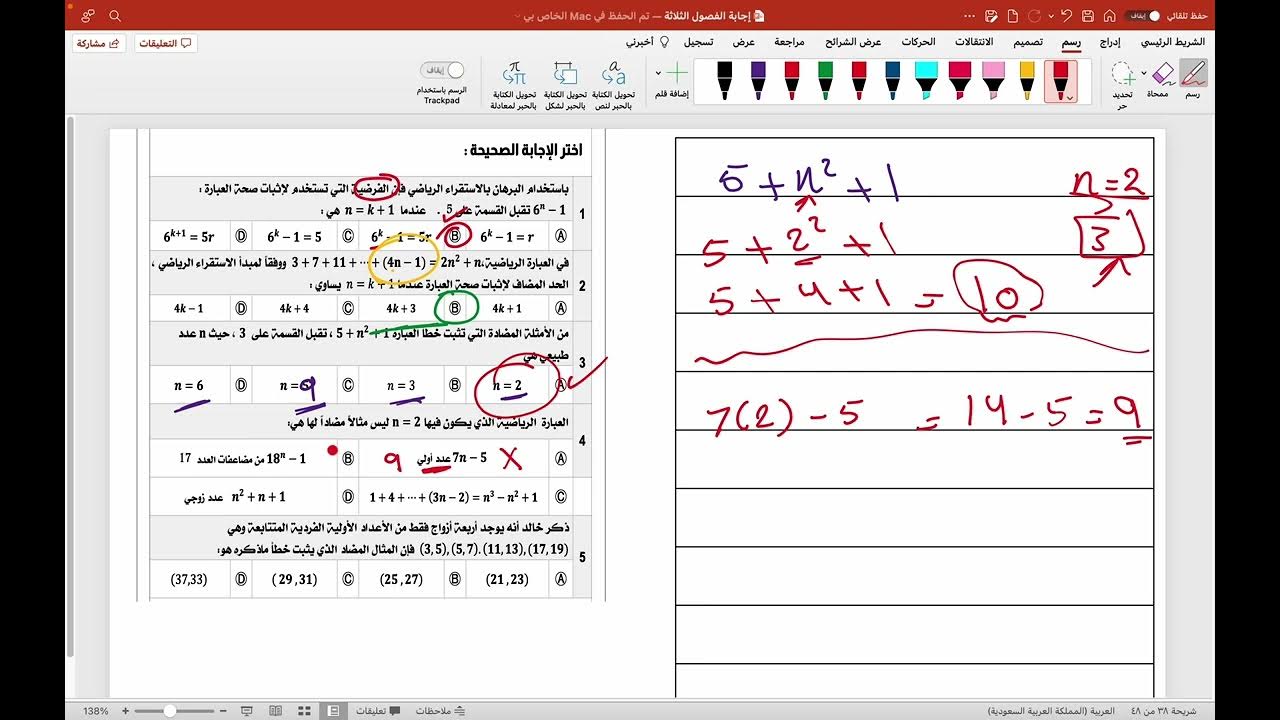 حفظ تلقائي إيقاف
إجابة الفصول الثلاثة — تم الحفظ في Mac الخاص بي
الشريط الرئيسي إدراج رسم تصميم الانتقالات الحركات عرض الشرائح مراجعة عرض تسجيل أخبرني
التعليقات مشاركة
رسم ممحاة تحديد حر إضافة قلم تحويل الكتابة بالحبر لنص تحويل الكتابة بالحبر لشكل تحويل الكتابة بالحبر لمعادلة إيقاف الرسم باستخدام Trackpad
اختر الإجابة الصحيحة :
1 باستخدام البرهان بالاستقراء الرياضي فإن الفرضية التي تستخدم لإثبات صحة العبارة :
6ⁿ − 1 تقبل القسمة على 5 . عندما n = k + 1 هي :
A 6ᵏ − 1 = r B 6ᵏ − 1 = 5r C 6ᵏ − 1 = 5 D 6ᵏ⁺¹ = 5r
2 في العبارة الرياضية، 3 + 7 + 11 + ⋯ + (4n − 1) = 2n² + n ووفقاً لمبدأ الاستقراء الرياضي ،
الحد المضاف لإثبات صحة العبارة عندما n = k + 1 يساوي :
A 4k + 1 B 4k + 3 C 4k + 4 D 4k − 1
3 من الأمثلة المضادة التي تثبت خطأ العبارة 5 + n² + 1 ، تقبل القسمة على 3 ، حيث n عدد
طبيعي هي
A n = 2 B n = 3 C n = 9 D n = 6
4 العبارة الرياضية الذي يكون فيها n = 2 ليس مثالاً مضاداً لها هي:
A 7n − 5 عدد أولي X 9 B 18ⁿ − 1 من مضاعفات العدد 17
C 1 + 4 + ⋯ + (3n − 2) = n³ − n² + 1 D n² + n + 1 عدد زوجي
5 ذكر خالد أنه يوجد أربعة أزواج فقط من الأعداد الأولية الفردية المتتابعة وهي
(3, 5), (5, 7). (11, 13), (17, 19) فإن المثال المضاد الذي يثبت خطأ ماذكره هو:
A (21 , 23) B (25 , 27) C (29 , 31) D (37,33)
5 + n² + 1
n = 2
5 + 2² + 1
3
5 + 4 + 1 = 10
7(2) − 5 = 14 − 5 = 9
شريحة ٣٨ من ٤٨ العربية (المملكة العربية السعودية) ملاحظات تعليقات 138%